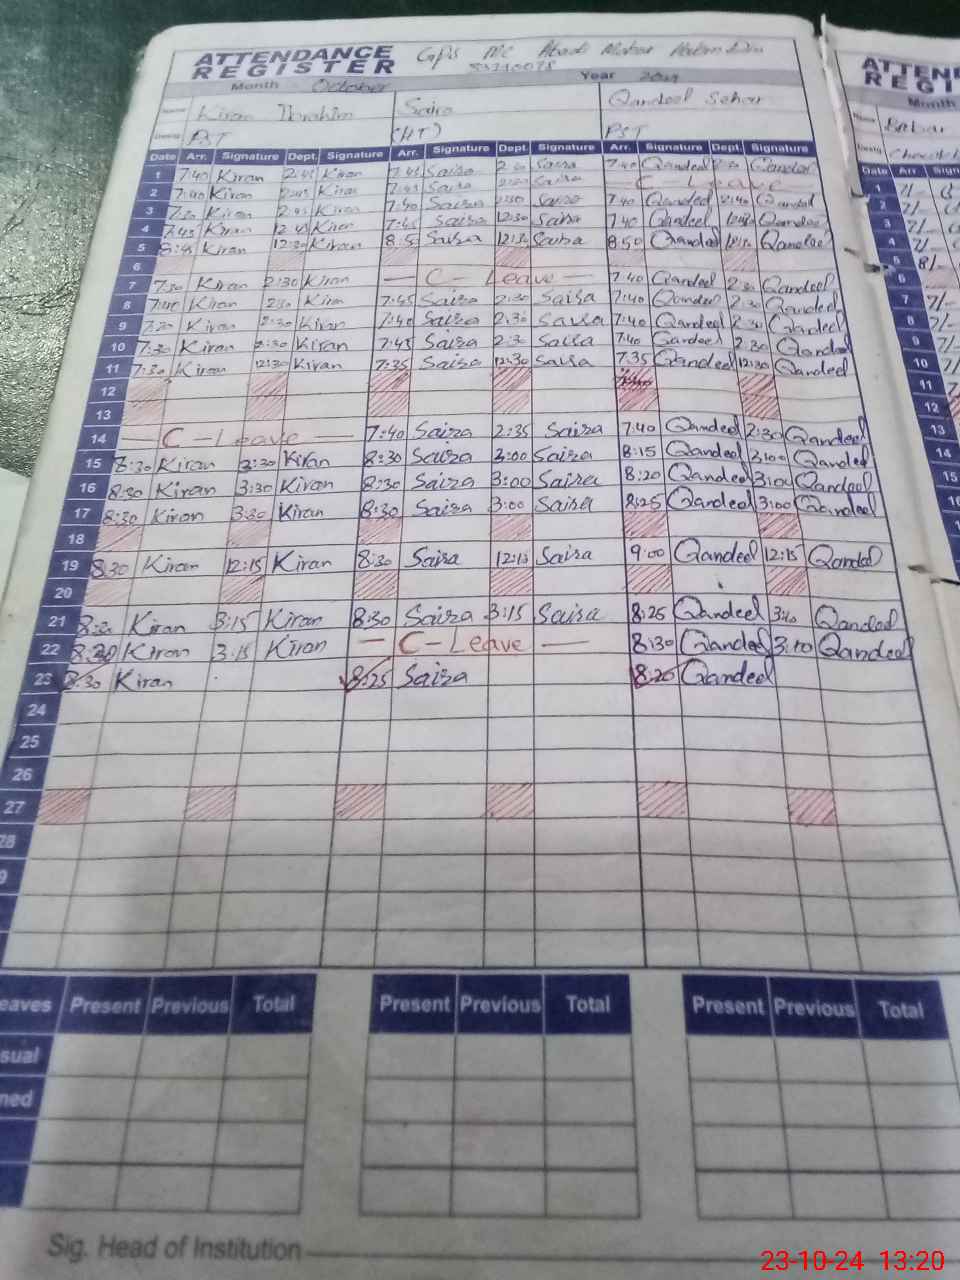 ATTENDANCE REGISTER GPS MC Abadi
Month October Year
Name Kiran Ibrahim Saira Qandeel Sehar
Desig PST (HT) PST
Date Arr. Signature Dept. Signature Arr. Signature Dept. Signature Arr. Signature Dept. Signature
1 7:40 Kiran 2:45 Kiran 7:45 Saira Saira 7:40 Qandeel Qandeel
2 7:40 Kiran 2:45 Kiran 7:45 Saira Saira C Leave
3 Kiran 2:45 Kiran 7:40 Saira Saira 7:40 Qandeel 2:40 Qandeel
4 7:45 Kiran 12:45 Kiran 7:45 Saira 12:30 Saira 7:40 Qandeel Qandeel
5 8:45 Kiran 12:30 Kiran 8:5 Saira 12:30 Saira 8:50 Qandeel Qandeel
6
7 7:30 Kiran 2:30 Kiran — C - Leave — 7:40 Qandeel 2:30 Qandeel
8 7:40 Kiran 2:30 Kiran 7:45 Saira 2:30 Saira 7:40 Qandeel 2:30 Qandeel
9 7:20 Kiran 2:30 Kiran 7:40 Saira 2:30 Saira 7:40 Qandeel 2:30 Qandeel
10 7:30 Kiran 2:30 Kiran 7:45 Saira 2:30 Saira 7:40 Qandeel 2:30 Qandeel
11 7:30 Kiran 12:30 Kiran 7:35 Saira 12:30 Saira 7:35 Qandeel 12:30 Qandeel
12
13
14 — C - Leave — 7:40 Saira 2:35 Saira 7:40 Qandeel 2:30 Qandeel
15 8:30 Kiran 3:30 Kiran 8:30 Saira 3:00 Saira 8:15 Qandeel 3:00 Qandeel
16 8:30 Kiran 3:30 Kiran 8:30 Saira 3:00 Saira 8:20 Qandeel 3:00 Qandeel
17 8:30 Kiran 3:30 Kiran 8:30 Saira 3:00 Saira 8:25 Qandeel 3:00 Qandeel
18
19 8:30 Kiran 12:15 Kiran 8:30 Saira 12:15 Saira 9:00 Qandeel 12:15 Qandeel
20
21 8:30 Kiran 3:15 Kiran 8:30 Saira 3:15 Saira 8:25 Qandeel Qandeel
22 8:30 Kiran 3:15 Kiran — C - Leave — 8:30 Qandeel 3:10 Qandeel
23 8:30 Kiran 8:25 Saira 8:20 Qandeel
24
25
26
27
28
9
eaves Present Previous Total Present Previous Total Present Previous Total
sual
ned
Sig. Head of Institution
23-10-24 13:20
ATTEN
REG
Month
Name Babar
Desig
Date Arr Sign
1 7/-
2 7/-
3 7/-
4 7/-
5 8/-
6
7 7/-
8 7/-
9 7/-
10
11
12
13
14
15